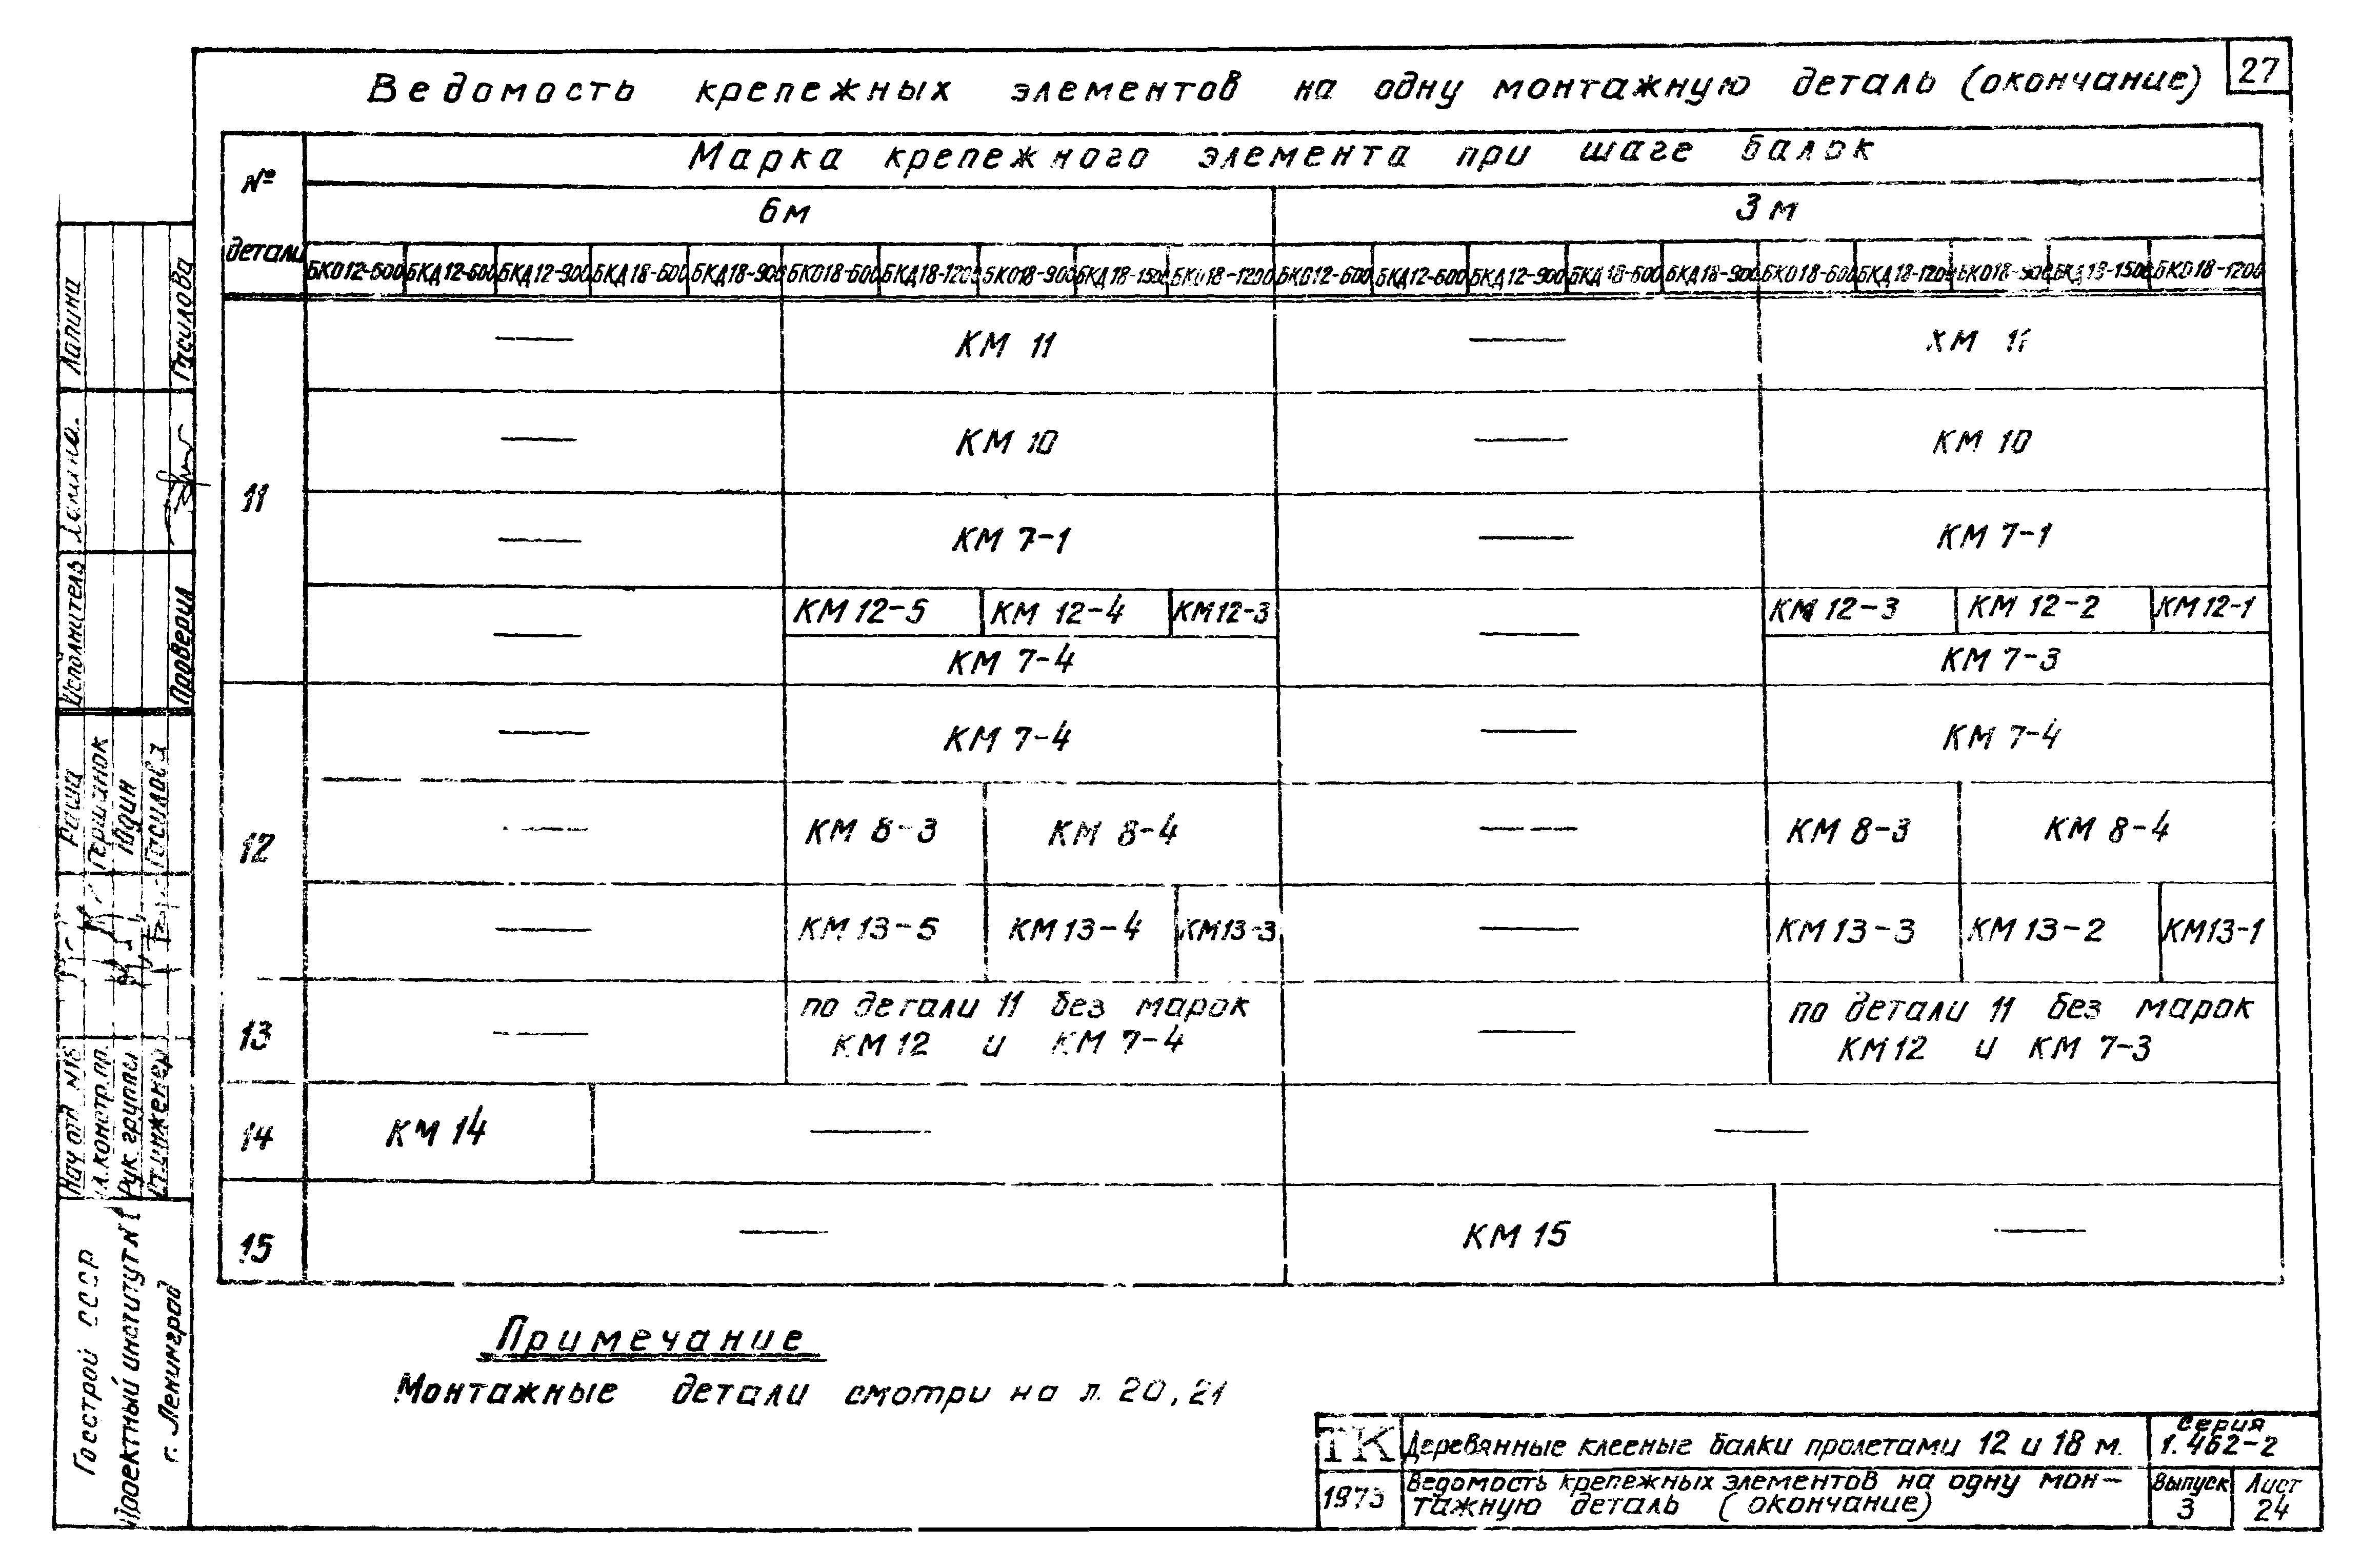 27
Ведомость крепежных элементов на одну монтажную деталь (окончание)
№ детали
Марка крепежного элемента при шаге балок
6м 3м
БКО12-600 БКД12-600 БКД12-900 БКД18-600 БКД18-900 БКО18-600 БКД18-1200 БКО18-900 БКД18-1500 БКО18-1200 БКО12-600 БКД12-600 БКД12-900 БКД18-600 БКД18-900 БКО18-600 БКД18-1200 БКО18-900 БКД18-1500 БКО18-1200
11
— КМ 11 — КМ 11
— КМ 10 — КМ 10
— КМ 7-1 — КМ 7-1
— КМ 12-5 КМ 12-4 КМ12-3 — КМ 12-3 КМ 12-2 КМ12-1
КМ 7-4 КМ 7-3
12
— КМ 7-4 — КМ 7-4
— КМ 8-3 КМ 8-4 — КМ 8-3 КМ 8-4
— КМ 13-5 КМ 13-4 КМ13-3 — КМ 13-3 КМ 13-2 КМ13-1
13 — по детали 11 без марок — по детали 11 без марок
КМ 12 и КМ 7-4 КМ 12 и КМ 7-3
14 КМ 14 — —
15 — КМ 15 —
Примечание
Монтажные детали смотри на л. 20, 21
ТК Деревянные клееные балки пролетами 12 и 18 м. Серия
1.462-2
1973 Ведомость крепежных элементов на одну мон-
тажную деталь (окончание)
Выпуск 3 Лист 24
Госстрой СССР
Проектный институт №1
г. Ленинград
Нач отд №18 Раша
Гл. констр. пр. Гершанок
Рук. группы Юдин
Ст. инженер Гасилова
Исполнитель Лапина
Проверил Гасилова